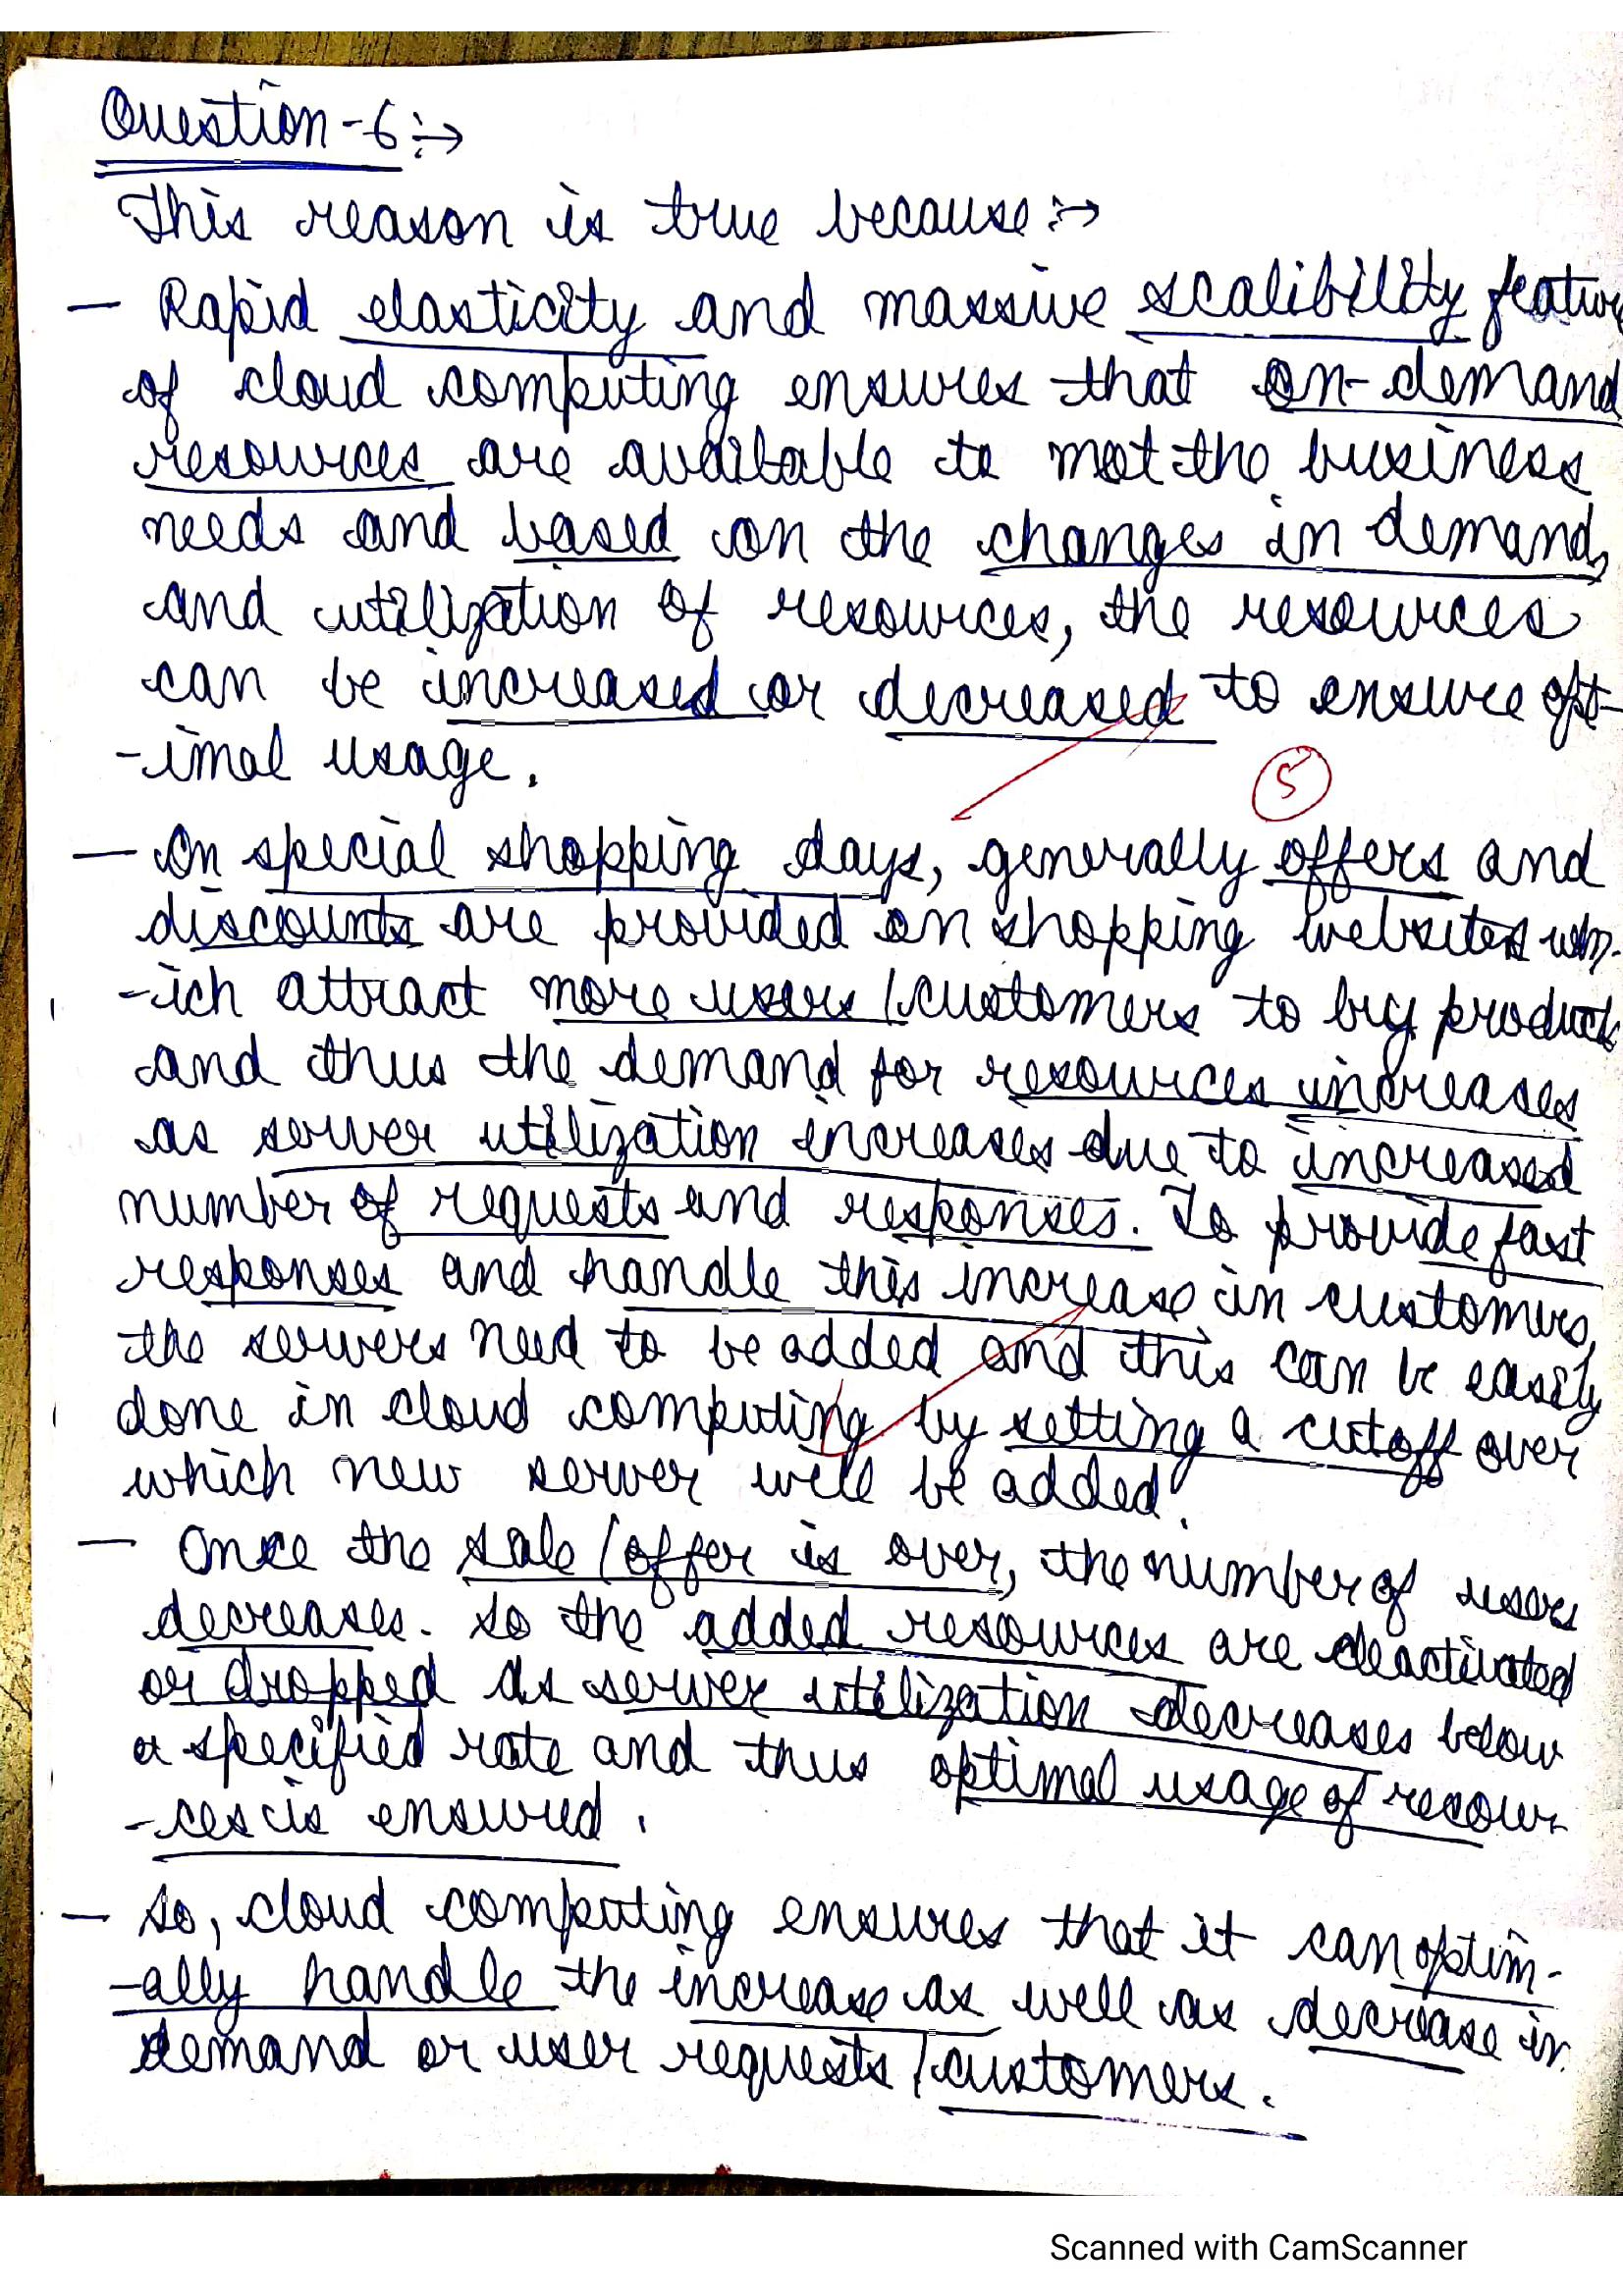 Question-6 :→
This reason is true because :→
— Rapid elasticity and massive scalibility feature
of cloud computing ensures that on-demand
resources are available to met the business
needs and based on the changes in demand,
and utilization of resources, the resources
can be increased or decreased to ensure opt-
-imal usage.
5
— On special shopping days, generally offers and
discounts are provided on shopping websites wh-
-ich attract more users/customers to buy products
and thus the demand for resources increases
as server utilization increases due to increased
number of requests and responses. To provide fast
responses and handle this increase in customers,
the servers need to be added and this can be easily
done in cloud computing by setting a cutoff over
which new server will be added.
— Once the sale/offer is over, the number of users
decreases. So the added resources are deactivated
or dropped as server utilization decreases below
a specified rate and thus optimal usage of resour-
-ces is ensured.
— So, cloud computing ensures that it can optim-
-ally handle the increase as well as decrease in
demand or user requests/customers.
Scanned with CamScanner